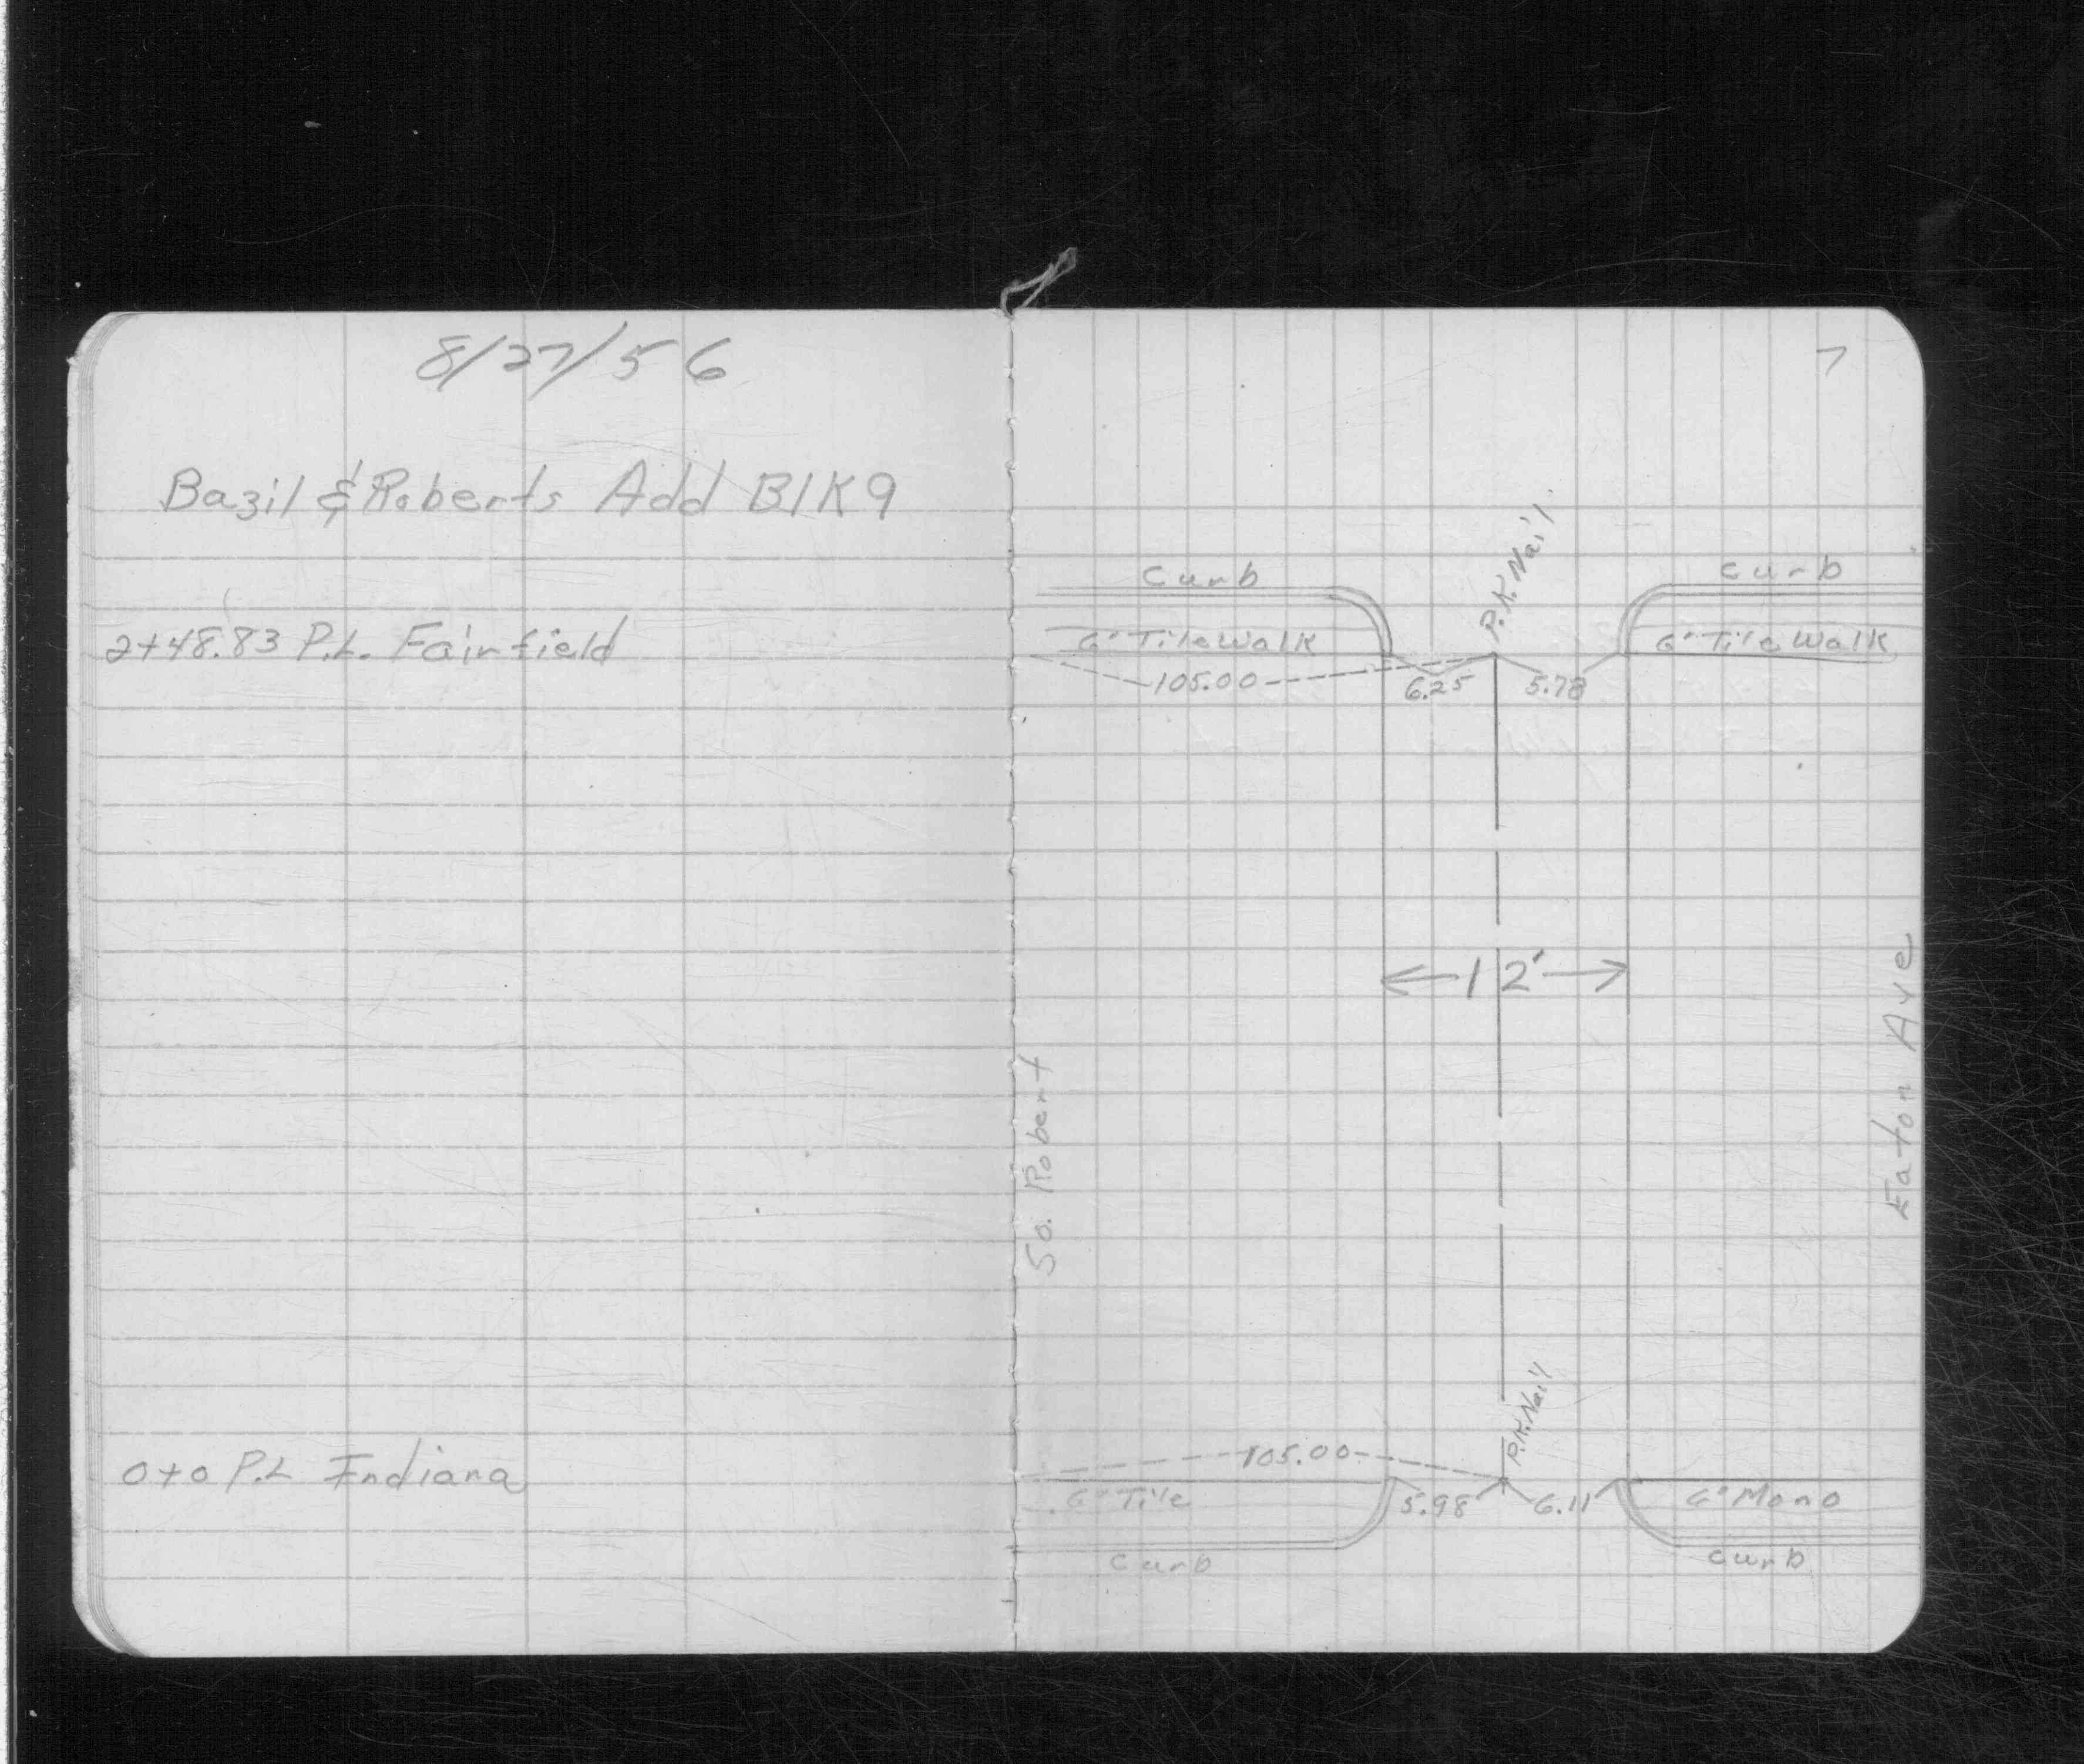 8/27/56
Bazil & Roberts Add Blk 9
2+48.83 P.L. Fairfield
0+0 P.L Indiana
7
P.K. Nail
Curb
Curb
6" Tile Walk
6" Tile Walk
105.00
6.25
5.78
12'
So. Robert
Eaton Ave
P.K. Nail
105.00
6" Tile
5.98
6.11
6" Mono
Curb
Curb